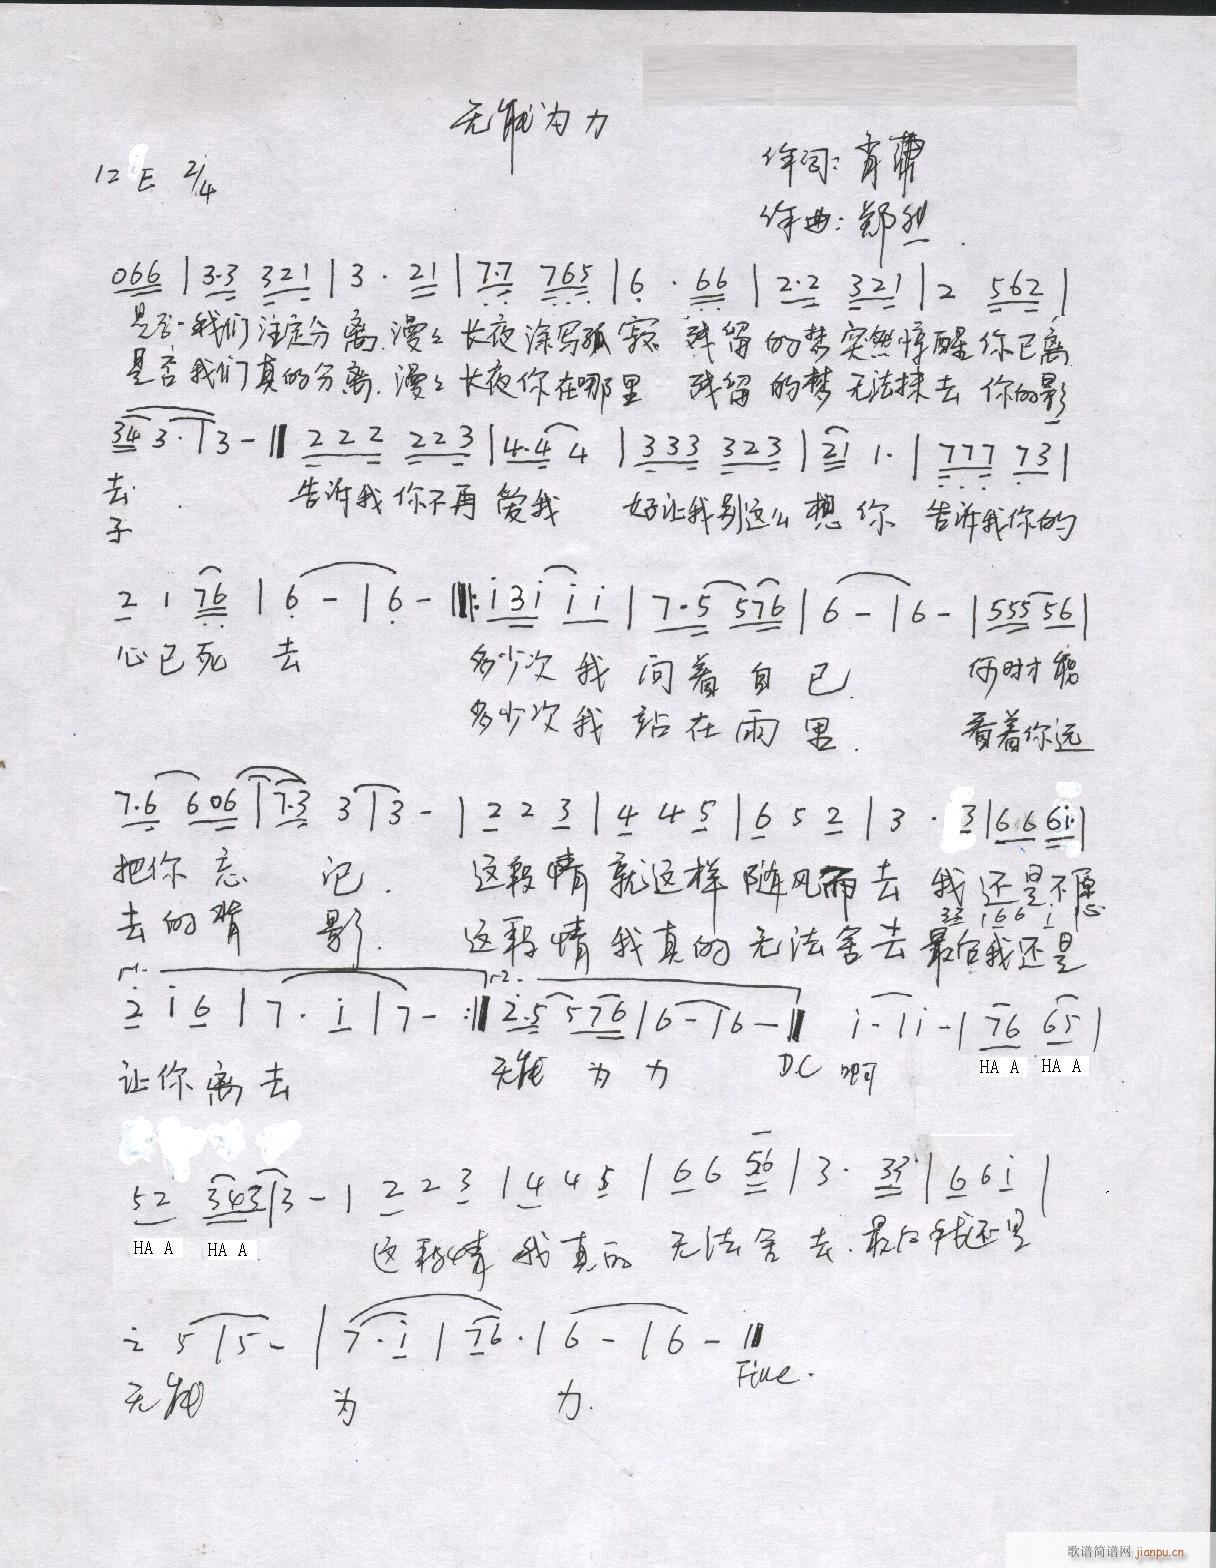 无能为力
12 E 2/4
作词: 肖
作曲: 郑
066 | 3·3 321 | 3 · 21 | 7·7 765 | 6 · 66 | 2·2 321 | 2 562 |
是否我们注定分离 漫漫长夜涂写孤寂 残留的梦突然惊醒你已离
是否我们真的分离 漫漫长夜你在哪里 残留的梦无法抹去 你的影
34 3 · | 3 - || 222 223 | 4·4 4 | 333 323 | 21 1· | 777 73 |
去 告诉我你不再爱我 好让我别这么想你 告诉我你的
子
2 1 76 | 6 - | 6 - ||: i3i i i | 7·5 576 | 6 - | 6 - | 555 56 |
心已死去 多少次我问着自己 何时才能
多少次我站在雨里. 看着你远
7·6 606 | 7·3 3 | 3 - | 2 2 3 | 4 4 5 | 6 5 2 | 3 · 3 | 66 6i· |
把你忘记. 这段情就这样随风而去 我还是不愿
33 166 i
去的背影. 这段情我真的无法舍去 最后我还是
1. 2.
2 i 6 | 7 · i | 7 - :|| 2·5 576 | 6 - | 6 - || i - | i - | 76 65 |
让你离去 无能为力 DC 啊 HA A HA A
52 343 | 3 - | 2 2 3 | 4 4 5 | 6 6 56 | 3 · 33 | 6 6 i |
HA A HA A 这段情我真的无法舍去.最后我还是
i 5 | 5 - | 7 · i | 76 · | 6 - | 6 - ||
无能为力. Fine.
歌谱简谱网 jianpu.cn